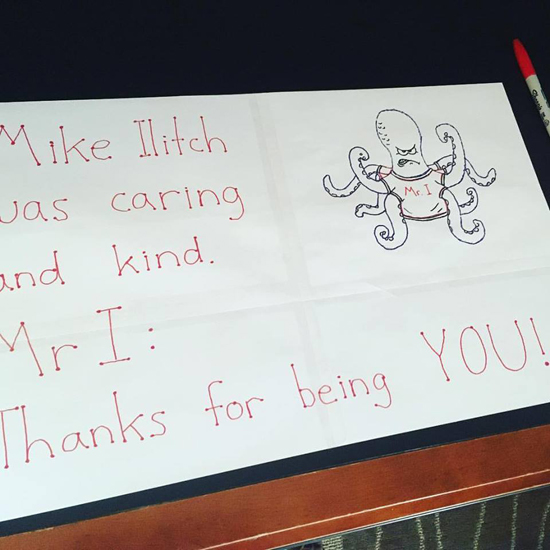 Mike Ilitch
was caring
and kind.
Mr. I
Mr I:
Thanks for being YOU!